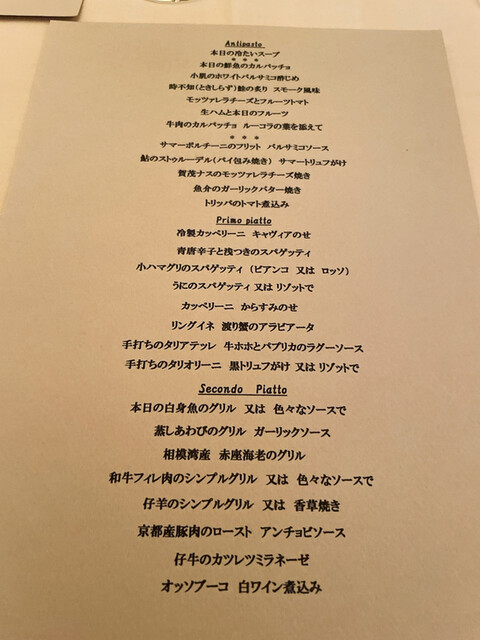 Antipasto
本日の冷たいスープ
＊＊＊
本日の鮮魚のカルパッチョ
小肌のホワイトバルサミコ酢じめ
時不知（ときしらず）鮭の炙り スモーク風味
モッツァレラチーズとフルーツトマト
生ハムと本日のフルーツ
牛肉のカルパッチョ ルーコラの葉を添えて
＊＊＊
サマーポルチーニのフリット バルサミコソース
鮎のストゥルーデル（パイ包み焼き） サマートリュフがけ
賀茂ナスのモッツァレラチーズ焼き
魚介のガーリックバター焼き
トリッパのトマト煮込み
Primo piatto
冷製カッペリーニ キャヴィアのせ
青唐辛子と浅つきのスパゲッティ
小ハマグリのスパゲッティ（ビアンコ 又は ロッソ）
うにのスパゲッティ 又は リゾットで
カッペリーニ からすみのせ
リングイネ 渡り蟹のアラビアータ
手打ちのタリアテッレ 牛ホホとパプリカのラグーソース
手打ちのタリオリーニ 黒トリュフがけ 又は リゾットで
Secondo Piatto
本日の白身魚のグリル 又は 色々なソースで
蒸しあわびのグリル ガーリックソース
相模湾産 赤座海老のグリル
和牛フィレ肉のシンプルグリル 又は 色々なソースで
仔羊のシンプルグリル 又は 香草焼き
京都産豚肉のロースト アンチョビソース
仔牛のカツレツミラネーゼ
オッソブーコ 白ワイン煮込み